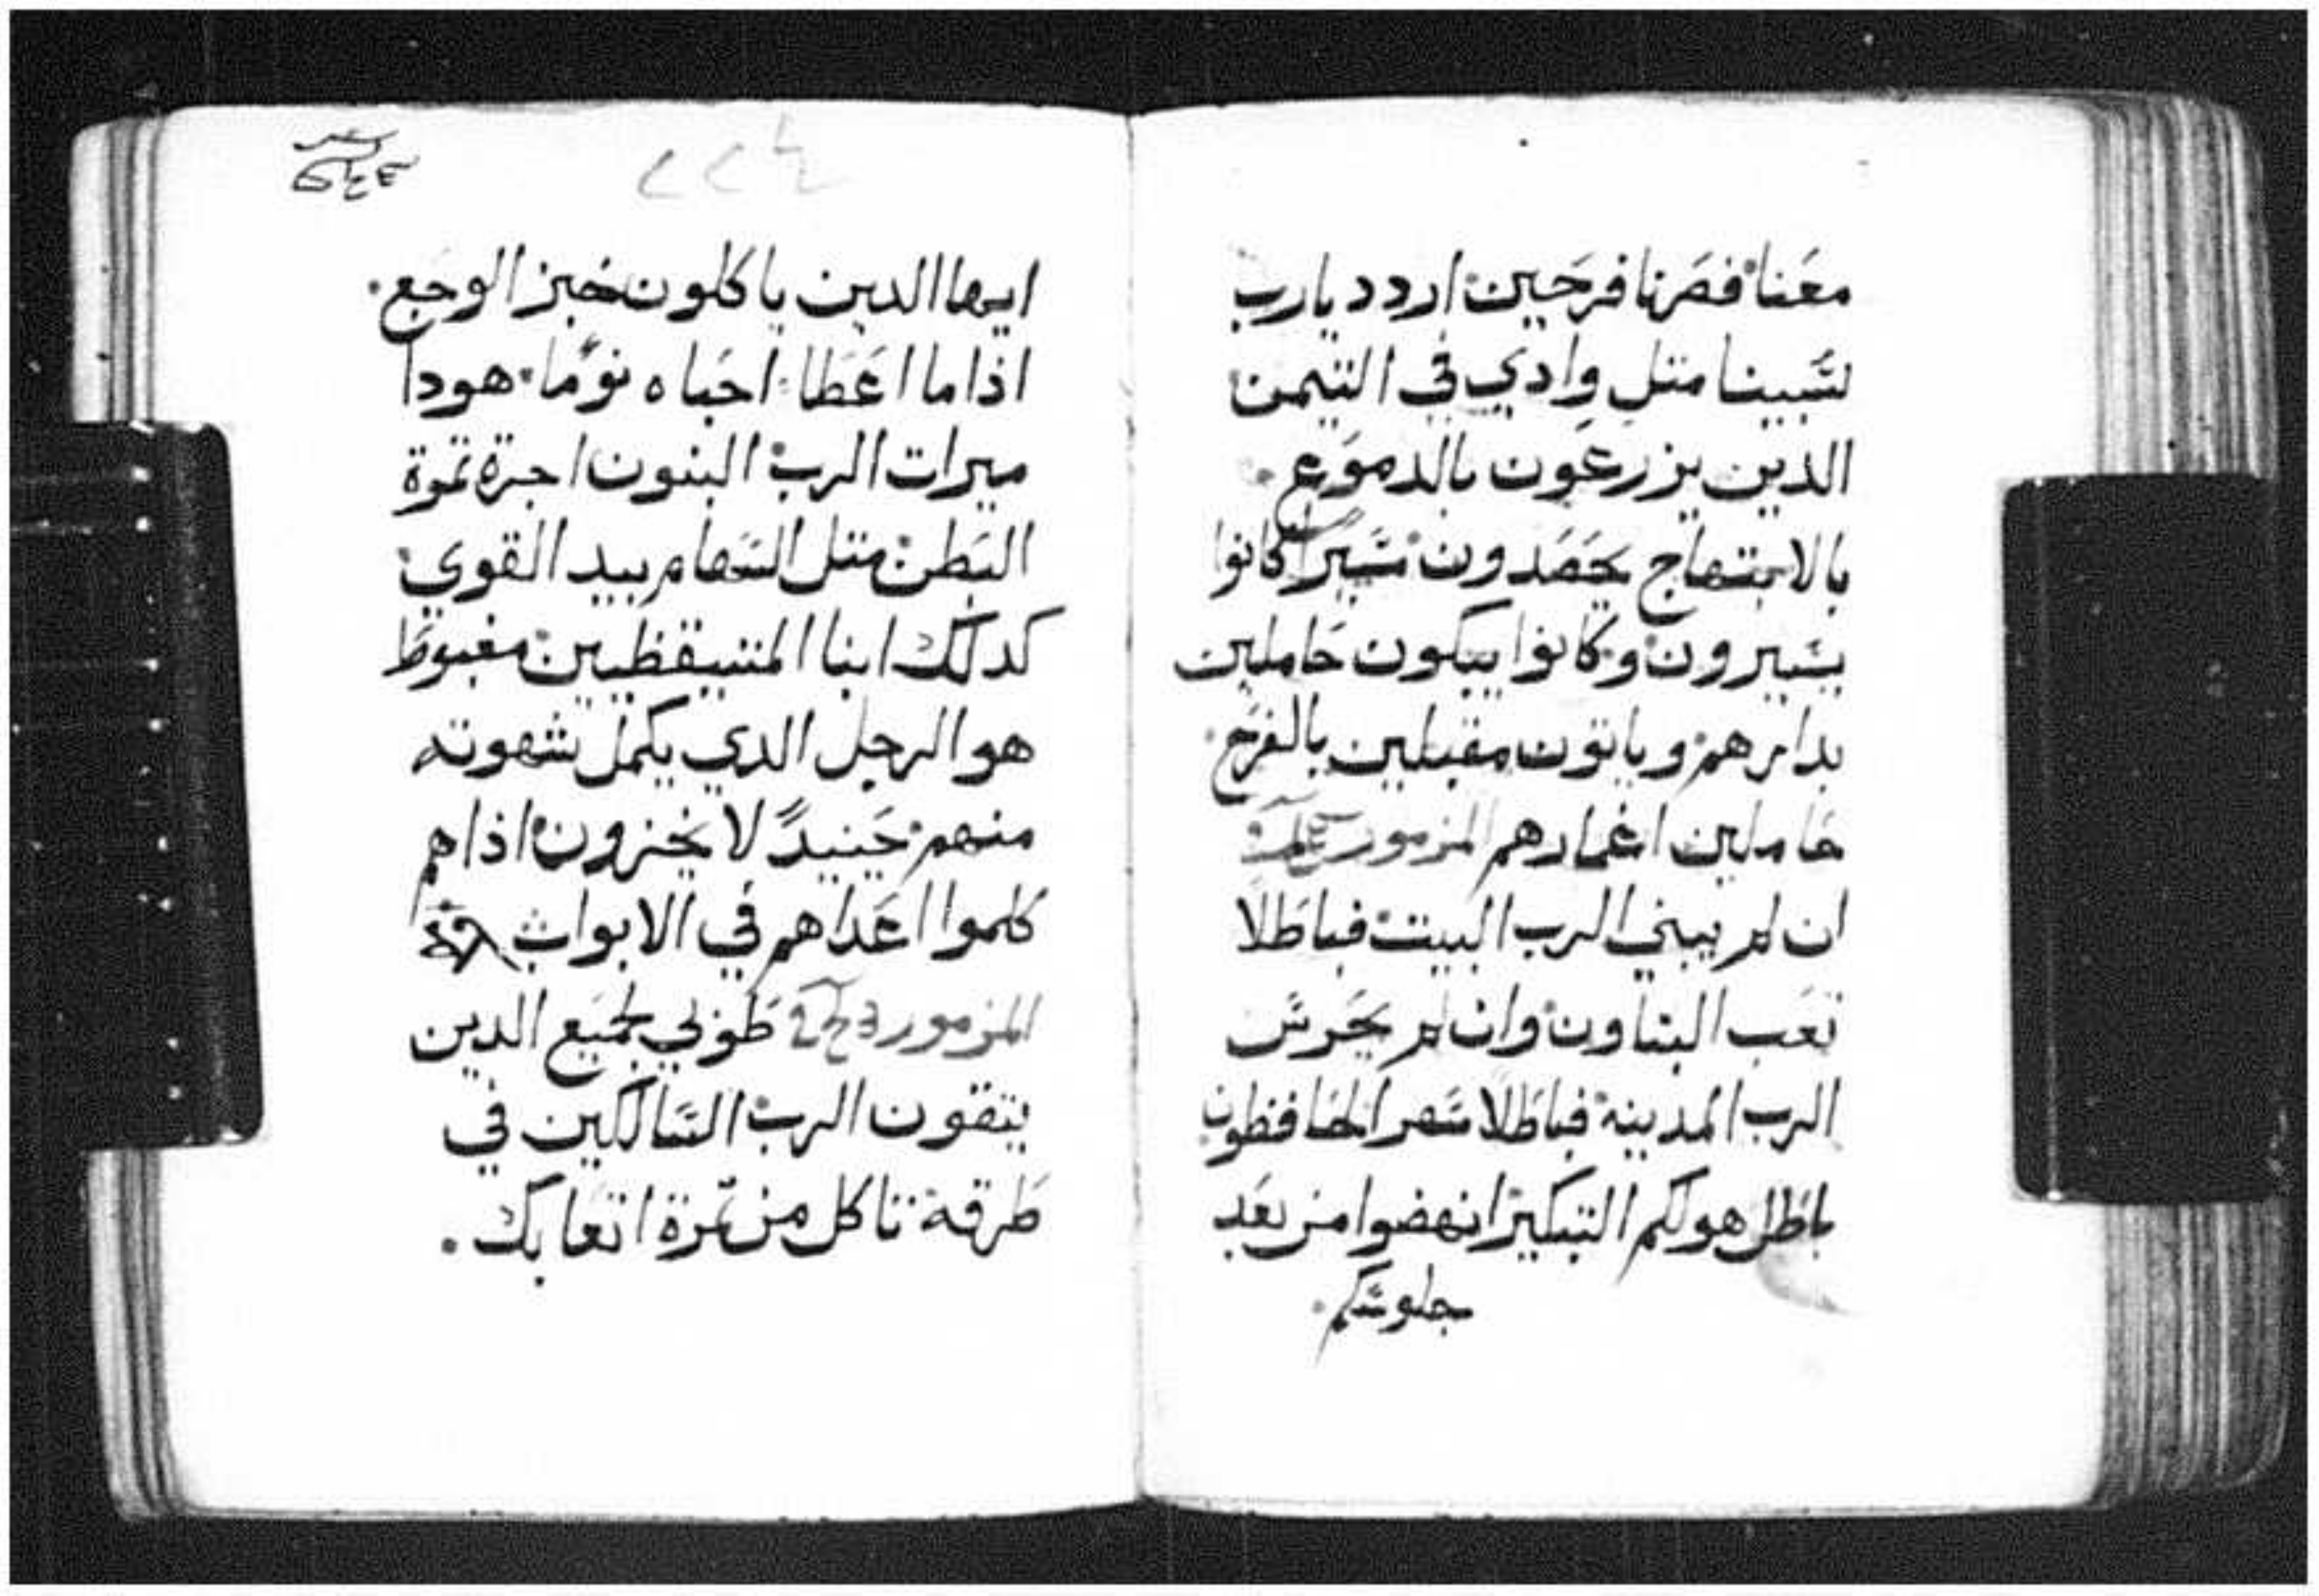 معنا فصرنا فرحين اردد يارب
لسبينا متل وادي في التيمن
الدين يزرعون بالدموع.
بالابتهاج يحصدون سيرا كانوا
يسيرون وكانوا يبكون حاملين
بدارهم وياتون مقبلين بالفرح.
حاملين اغمارهم المزمور
ان لم يبني الرب البيت فباطلا
تعب البناون وان لم يحرس
الرب المدينه فباطلا سهر الحافظون
باطل هو لكم التبكير انهضوا من بعد
جلوسكم.
٢٢٤
ايها الدين ياكلون خبز الوجع.
اذا ما اعطا احباه نومًا هودا
ميرات الرب البنون اجرة تمرة
البطن متل السهام بيد القوي
كدلك ابنا المتيقظيين مغبوط
هو الرجل الدي يكمل شهوته
منهم حينيدً لا يخزون اذا هم
كلموا اعداهم في الابواب
المزمور طوبي لجميع الدين
يتقون الرب السالكين في
طرقه تاكل من تمرة اتعابك.